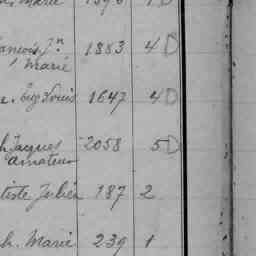 Marie
ancois Jn 1883 4 D
Marie
e. Eug Louis 1647 4 D
h Jacques 2058 5 D
amateur
tiste Julien 187 2
h. Marie 239 1